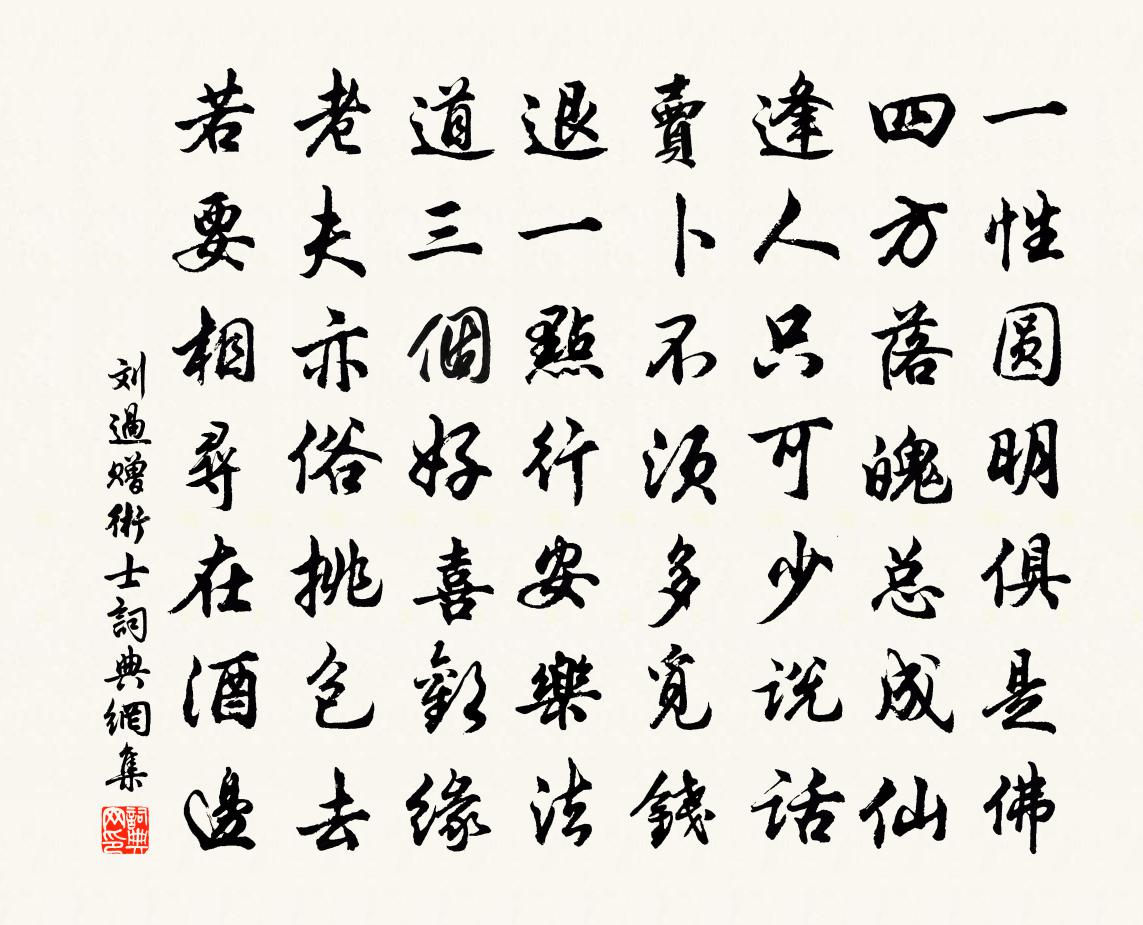 一性圓明俱是佛
四方落魄总成仙
逢人只可少说话
賣卜不須多覓錢
退一點行安樂法
道三個好喜歡緣
老夫亦俗挑包去
若要相尋在酒邊
刘過赠術士詞典網集
詞典网印